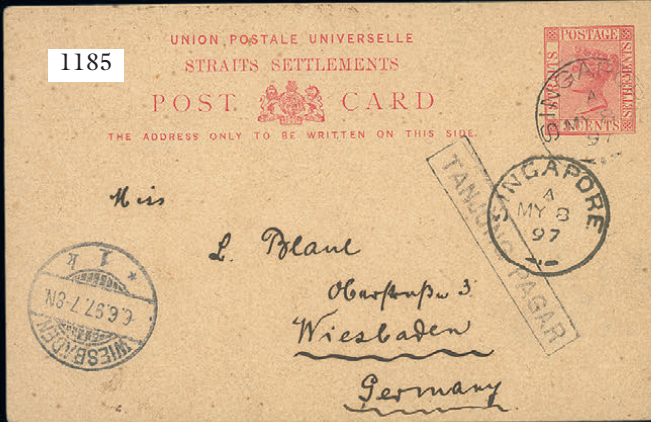 1185
UNION POSTALE UNIVERSELLE
STRAITS SETTLEMENTS
POST CARD
THE ADDRESS ONLY TO BE WRITTEN ON THIS SIDE.
POSTAGE
STRAITS
SETTLEMENTS
CENTS
SINGAPO
A
MY 8
97
SINGAPORE
A
MY 8
97
TANJONG PAGAR
Miss
L. Blaul
Oberstraße 3
Wiesbaden
Germany
* 1 k *
6.6.97.7-8N.
WIESBADEN